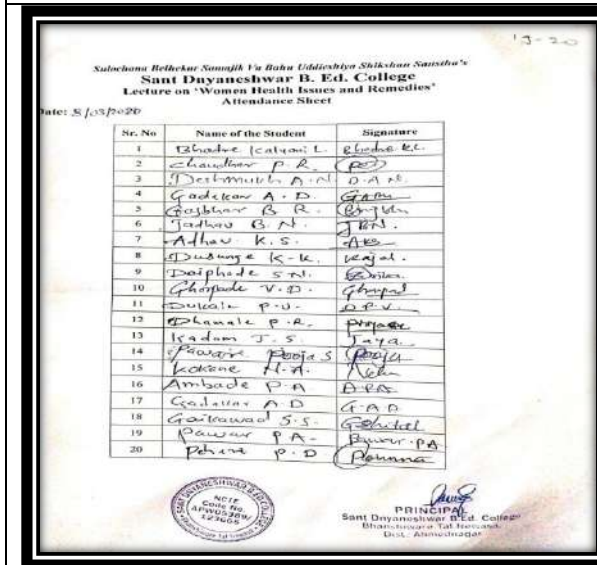 19-20
Sulochana Belhekar Samajik Va Bahu Uddieshiya Shikshan Sanstha's
Sant Dnyaneshwar B. Ed. College
Lecture on 'Women Health Issues and Remedies'
Attendance Sheet
Date: 8/03/2020
Sr. No Name of the Student Signature
1 Bhadre Kalyani L. Bhadre K.L.
2 Chaudhar P. R.
3 Deshmukh A. N. D. A. N.
4 Gadekar A. D.
5 Gajbhar B R.
6 Jadhav B. N. JBN.
7 Adhav K. S.
8 Dusunge K-K. Kajal.
9 Daiphode S N.
10 Ghorpade V. D.
11 Dukale P. V. D. P. V.
12 Dhanale P. R.
13 Kadam J. S. Jaya
14 Pooja S Pooja
15 Kokane N. A.
16 Ambade P A
17 Gadekar A. D G A D
18 Gaikawad S. S.
19 Pawar P A- Pawar. PA
20 P. D
SANT DNYANESHWAR B.ED. COLLEGE
NCTE
Code No.
APW05389/
123605
PRINCIPAL
Sant Dnyaneshwar B.Ed. College
Bhanshiwara Tal Newasa,
Dist. Ahmednagar